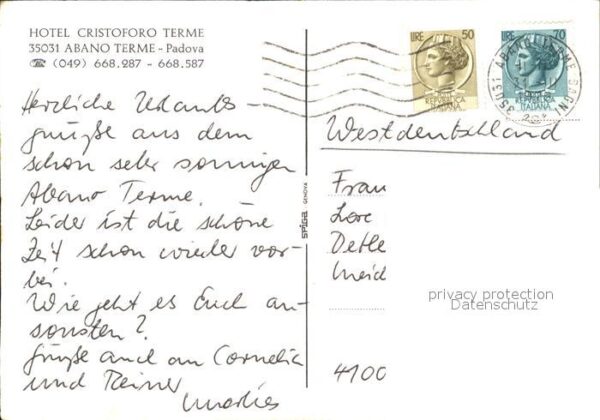 HOTEL CRISTOFORO TERME
35031 ABANO TERME - Padova
☎ (049) 668.287 - 668.587
LIRE 50
REPVBBLICA
ITALIANA
LIRE 70
REPVBBLICA
ITALIANA
35031 ABANO TERME
Herzliche Urlaubs-
grüße aus dem
schon sehr sonnigen
Abano Terme.
Leider ist die schöne
Zeit schon wieder vor-
bei.
Wie geht es Euch an-
sonsten?
Grüße auch an Cornelia
und Reiner
Marlies
spiga GENOVA
Westdeutschland
Frau
Lore
Detle
Meid
4100
privacy protection
Datenschutz